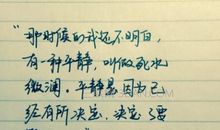 "那时候的我还不明白，
有一种平静，叫做死水
微澜。平静是因为已
经有所决定，决定了要